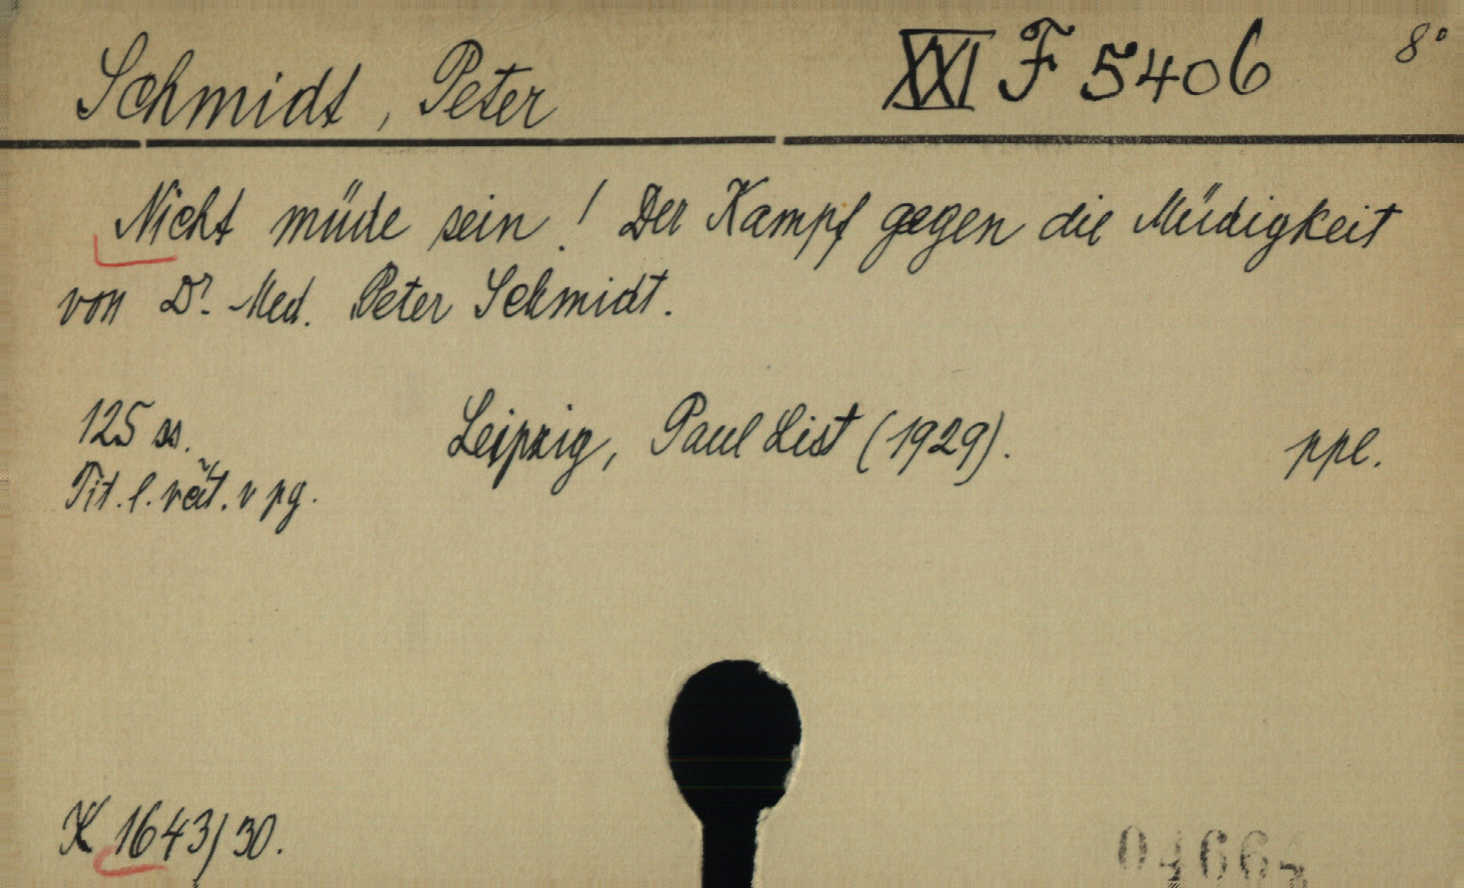 Schmidt, Peter
XXI F 5406
8°
Nicht müde sein! Der Kampf gegen die Müdigkeit
von Dr. Med. Peter Schmidt.
125 ss.
Leipzig, Paul List (1929).
ppl.
Tit. l. vät. v pg.
K 1643/30.